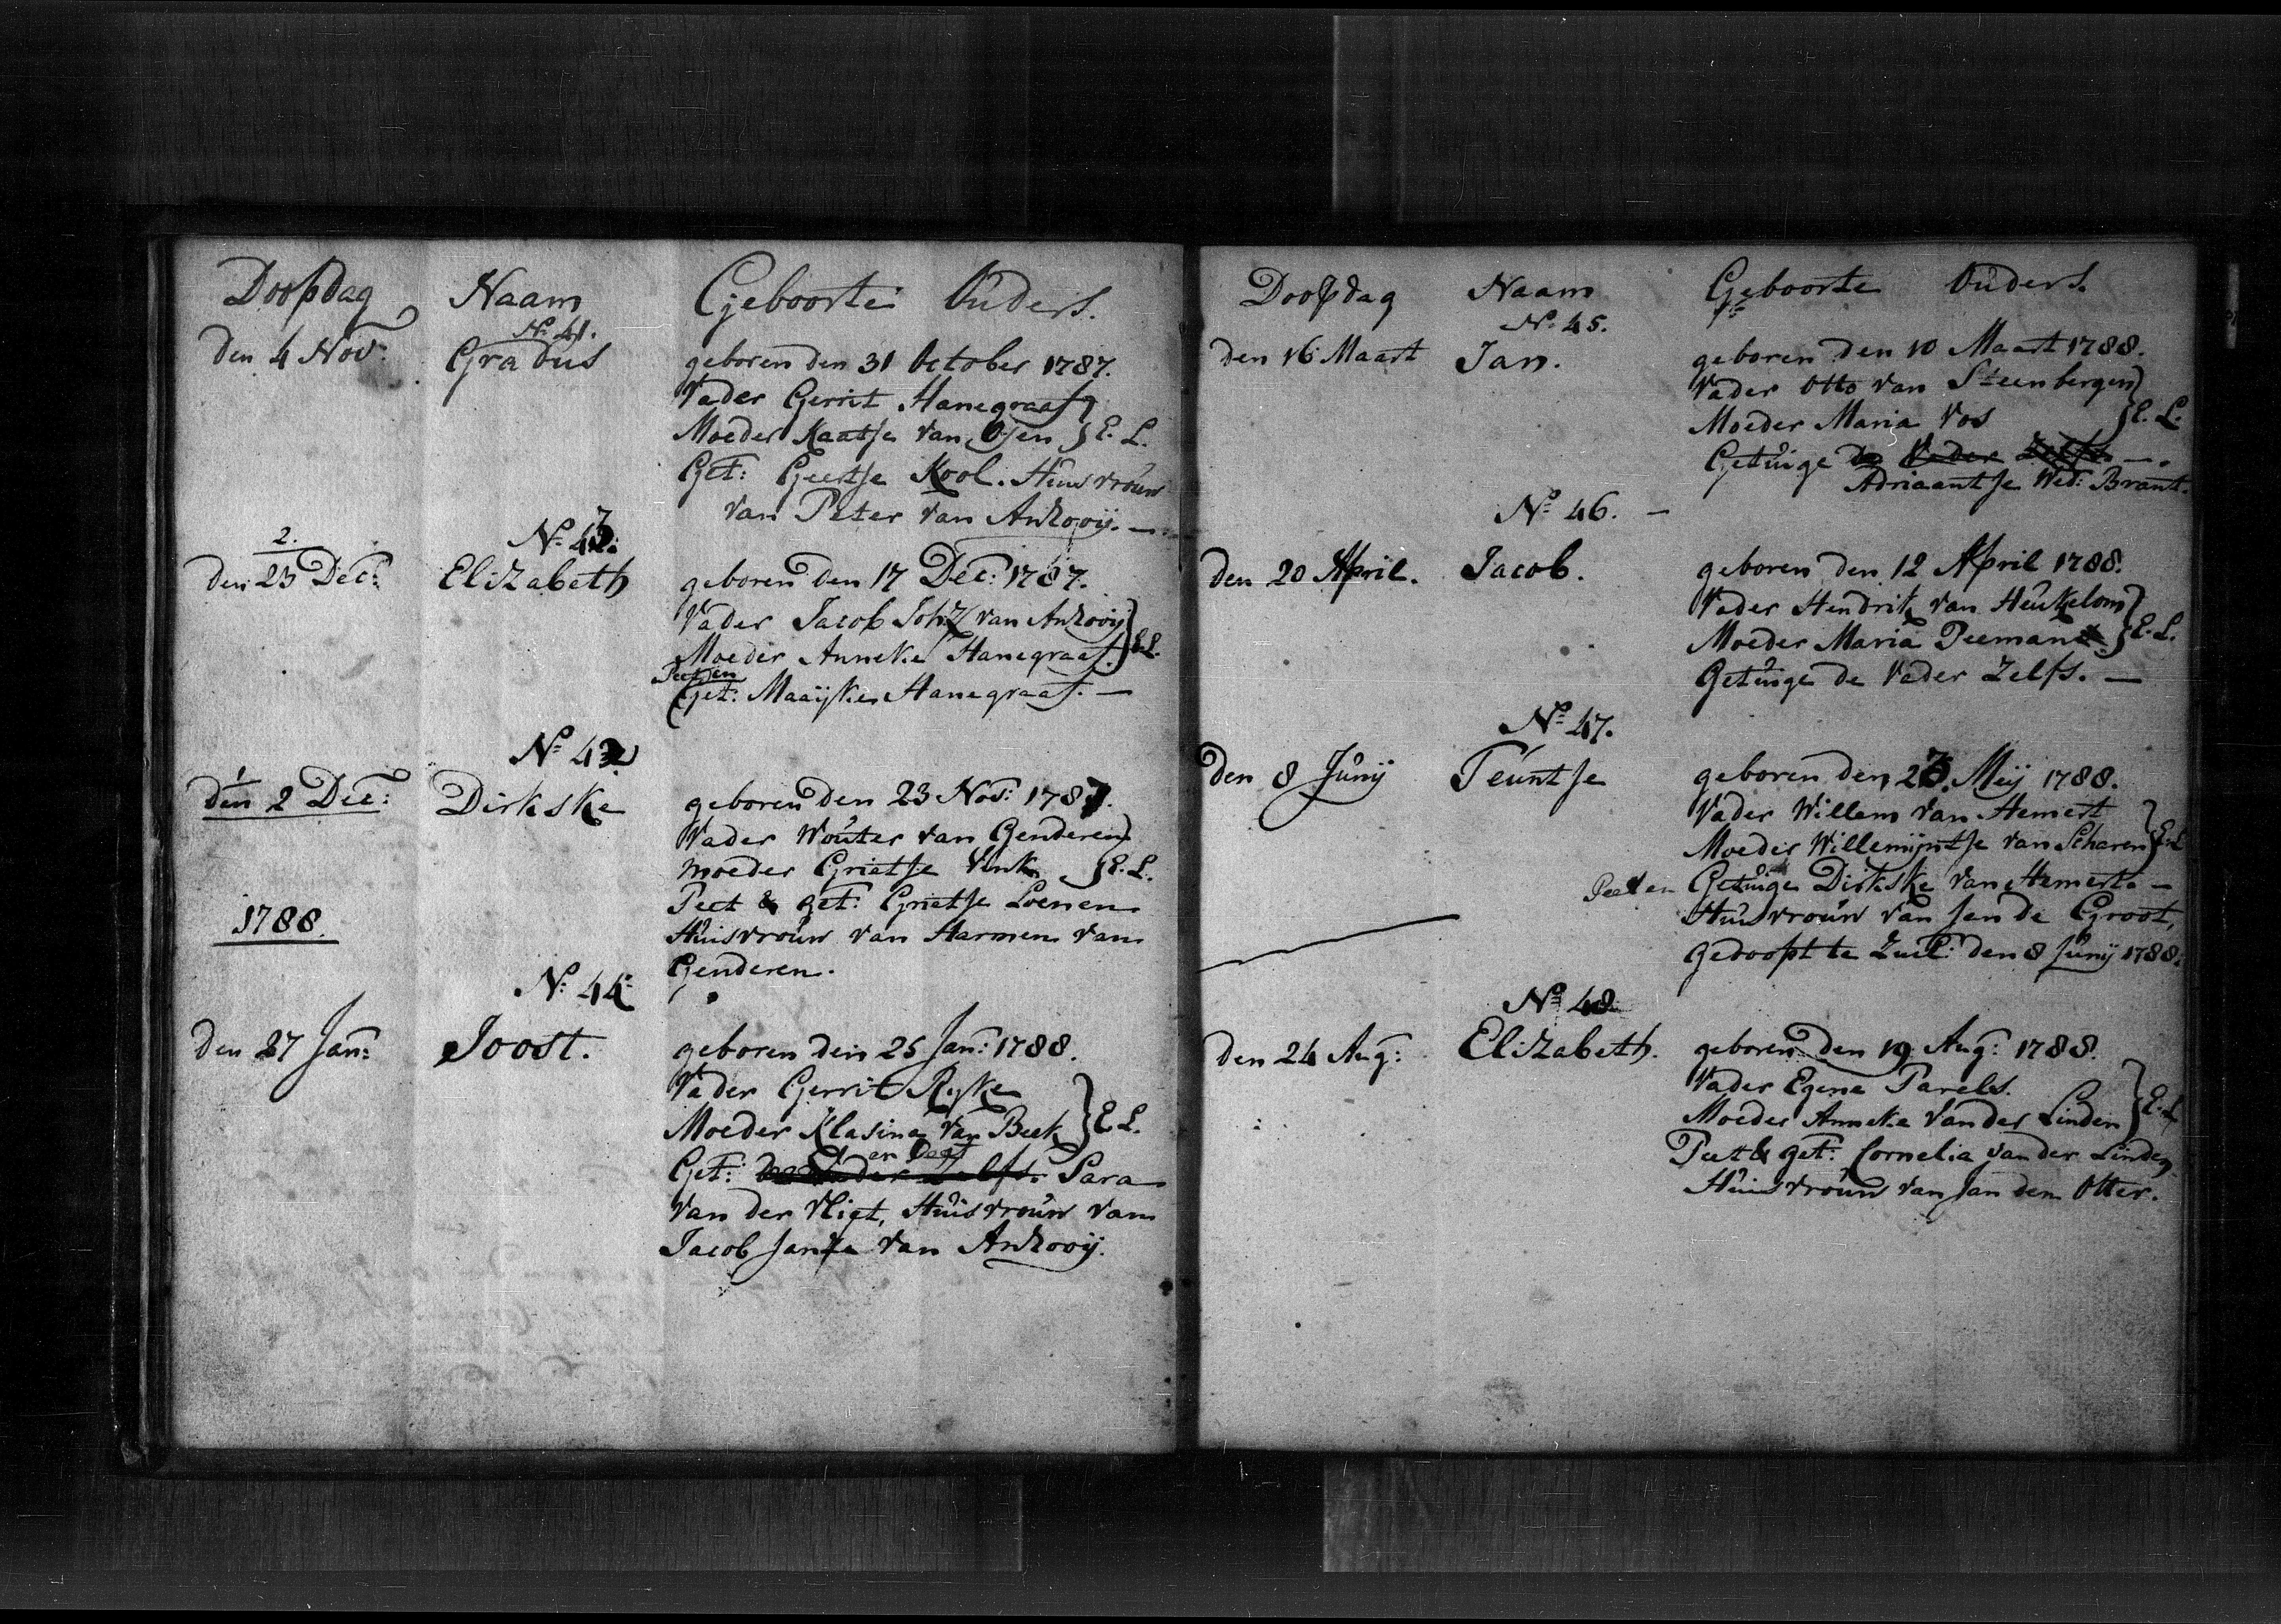 Doopdag Naam Geboorte Ouders.
No. 41.
den 4 Nov: Gradus geboren den 31 October 1787.
Vader Gerrit Hanegraaf
Moeder Kaatje van Osen } E. L.
Get: Geertje Kool. Huisvrouw
van Peter van Ankooij. —
2. No. 43.
den 23 Dec: Elizabeth geboren den 17 Dec: 1787.
Vader Jacob Johz van Ankooij
Moeder Anneke Hanegraaf. } E. L.
Peet en
Get: Maaijke Hanegraaf. —
1 No. 42
den 2 Dec: Dirkske geboren den 23 Nov: 1787.
Vader Wouter van Genderen
moeder Grietje Vink } E. L.
Peet & get: Grietje Loenen
Huisvrouw van Harmen van
Genderen.
1788.
No. 44.
den 27 Jan: Joost. geboren den 25 Jan: 1788.
Vader Gerrit Ryke
Moeder Klasina van Beek } E. L.
en Peet
Get: de Vader Zelfs. Sara
van der Vligt, Huisvrouw van
Jacob Janze van Ankooij.
Doopdag Naam Geboorte Ouders.
No. 45.
den 16 Maart Jan. geboren den 10 Maart 1788.
Vader Otto van Steenbergen
Moeder Maria Vos } E. L.
Getuige de Vader Zelfs. —
Adriaantje Wed: Brant.
No. 46. —
den 20 April. Jacob. geboren den 12 April 1788.
Vader Hendrik van Heukelom
Moeder Maria Peeman } E. L.
Getuige de Vader Zelfs. —
No. 47.
den 8 Junij Teuntje geboren den 27. Meij 1788.
Vader Willem van Hemert
Moeder Willemijntje van Scharen } E. L.
Peet en Getuige Dirkske van Hemert. —
Huisvrouw van Jan de Groot,
gedoopt te Zuil: den 8 Junij 1788.
No. 48.
den 24 Aug: Elizabeth. geboren den 19 Aug: 1788.
Vader Egene Parels.
Moeder Anneke Vander Linden } E. L.
Peet & get: Cornelia van der Linden
Huisvrouw van Jan den Otter.